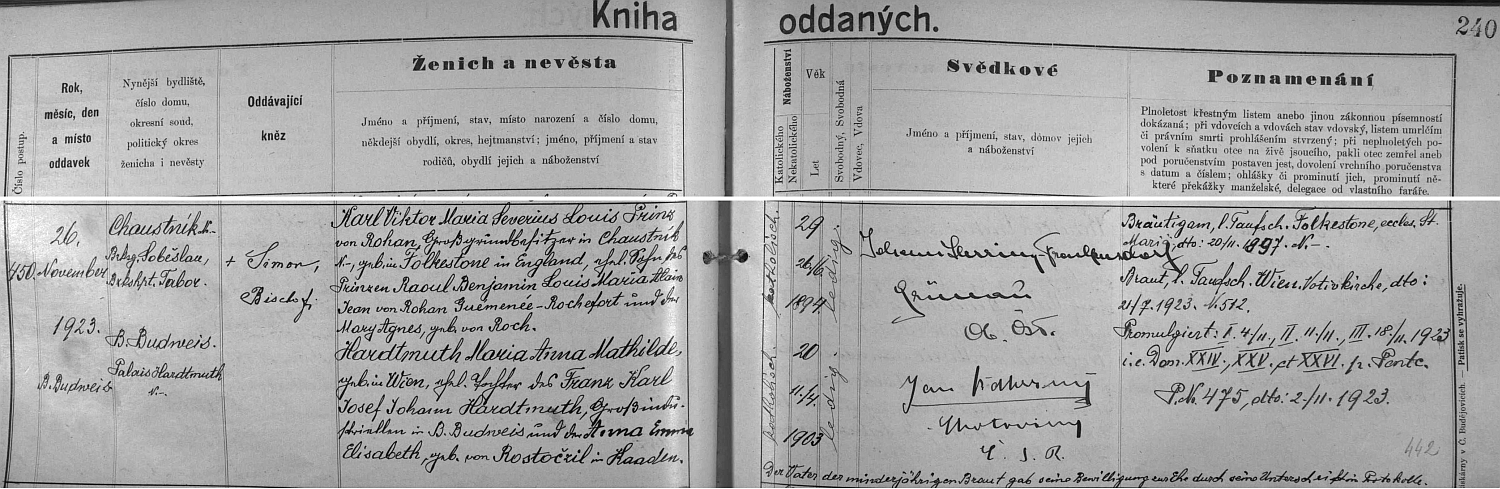 Kniha oddaných.
240
Číslo postup.
Rok,
měsíc, den
a místo
oddavek
Nynější bydliště,
číslo domu,
okresní soud,
politický okres
ženicha i nevěsty
Oddávající
kněz
Ženich a nevěsta
Jméno a příjmení, stav, místo narození a číslo domu,
někdejší obydlí, okres, hejtmanství; jméno, příjmení a stav
rodičů, obydlí jejich a náboženství
Náboženství
Katolického
Nekatolického
Věk
Let
Svobodný, Svobodná
Vdovec, Vdova
Svědkové
Jméno a příjmení, stav, domov jejich
a náboženství
Poznamenání
Plnoletost křestným listem anebo jinou zákonnou písemností
dokázaná; při vdovcích a vdovách stav vdovský, listem umrlčím
či právním smrti prohlášením stvrzený; při neplnoletých po-
volení k sňatku otce na živě jsoucího, pakli otec zemřel aneb
pod poručenstvím postaven jest, dovolení vrchního poručenstva
s datum a číslem; ohlášky či prominutí jich, prominutí ně-
které překážky manželské, delegace od vlastního faráře.
450.
26.
November
1923.
B. Budweis
Chaustník N–
Brkg. Soběslau,
Bzkshpt. Tabor.
B. Budweis.
Palais Hardtmuth
N.–
+ Simon,
Bischof.
Karl Viktor Maria Severius Louis Prinz
von Rohan, Großgrundbesitzer in Chaustník
N–, geb. in Folkestone in England, ehel. Sohn des
Prinzen Raoul Benjamin Louis Maria Alain
Jean von Rohan Guemenée-Rochefort und der
Mary Agnes, geb. von Roch.
Hardtmuth Maria Anna Mathilde,
geb. in Wien, ehel. Tochter des Franz Karl
Josef Johann Hardtmuth, Großindu-
striellen in B. Budweis und der Anna Emma
Elisabeth, geb. von Rostočzil in Haaden.
katholisch.
katholisch.
29
26/6
1894
20
11./4.
1903
ledig.
ledig.
Johann Herring-Frankensdorf
Grünau
Ob. Öst.
Jan
Chotoviny
Č. S. R.
Bräutigam, l. Taufsch. Folkestone, eccles. St.
Mariä, dto: 20/11. 1897. N–
Braut, l. Taufsch. Wien. Votivkirche, dto:
21/7. 1923. N. 512.
Promulgiert: I. 4./11., II. 11./11., III. 18./11. 1923
i. e. Dom. XXIV., XXV. et XXVI. p. Pente.
P. N. 475, dto: 2./11. 1923.
442
Der Vater der minderjährigen Braut gab seine Bewilligung zur Ehe durch seine Unterschrift im Protokolle.
tiskárny v Č. Budějovicích. — Patisk se vyhražuje.